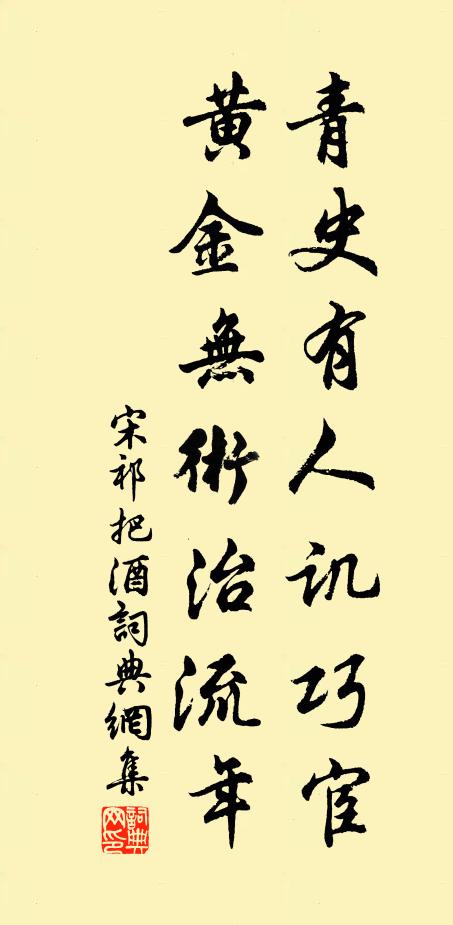 青史有人讥巧宦
黄金無術治流年
宋祁把酒詞典網集
詞典網印